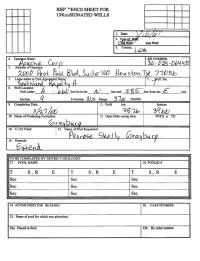 REFERENCE SHEET FOR
UNDESIGNATED WELLS
1. Date:
2. Type of Well
Oil Well Gas Well
3. County
Lea
4. Operator Name:
Apache Corp
API NUMBER
30-025-06445
5. Address of Operator
2000 Post Oak Blvd, Suite 100 Houston TX 77056
7. Lease name or Unit Agreement Name
Southland Royalty A
8. Well No.
6. Well Location
Unit Letter A feet from the N line and 585 feet from the E line
Section Township 21S Range 37E NMPM
9. Completion Date
11. Perfs top bottom
10. Name of Producing Formation
Grayburg
12. Open Hole casing shoe PBTD or TD
14. C-123 Filed: 15. Name of Pool Requested:
Penrose Skelly Grayburg
16. Remarks:
Extend
TO BE COMPLETED BY DISTRICT GEOLOGIST
17. POOL NAME: 18. POOL ID #
T S, R E T S, R E
Sec Sec
Sec Sec
Sec Sec
Sec Sec
19. ADVERTISED FOR HEARING: 20. CASE NUMBER:
21. Name of pool for which was advertised.
22a. Placed in Pool: 22b. By order number